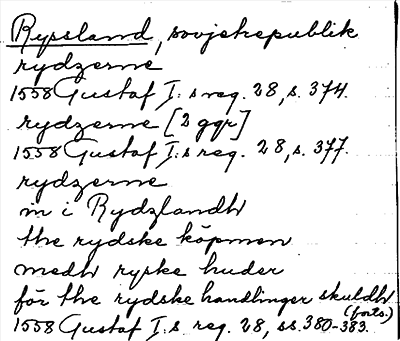 Ryssland, sovjetrepublik
rydzerne
1558 Gustaf I:s reg. 28, s. 374.
rydzerne [2 ggr]
1558 Gustaf I:s reg. 28, s. 377.
rydzerne
in i Rydzlandh
the rydske köpmen
medh ryske huder
för the rydske handlinger skuldh
(forts.)
1558 Gustaf I:s reg. 28, ss. 380-383.